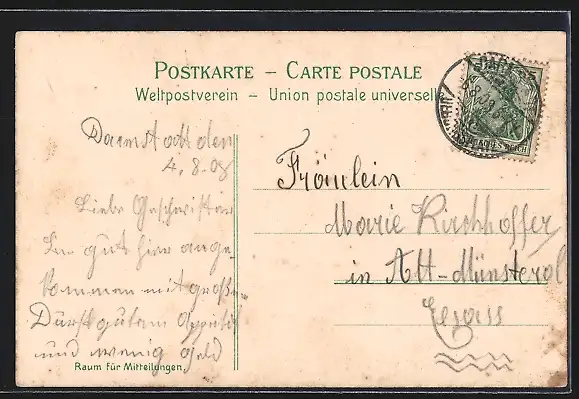 POSTKARTE – CARTE POSTALE
Weltpostverein – Union postale universelle
DEUTSCHES REICH
Darmstatt den
4.8.08
Liebe Geschwister
Bin gut hier ange-
kommen mit großen
Durst gutem Appetit
und wenig Geld
Raum für Mitteilungen.
Fräulein
Marie Kirchhoffer
in Alt-Münsterol
Elsass